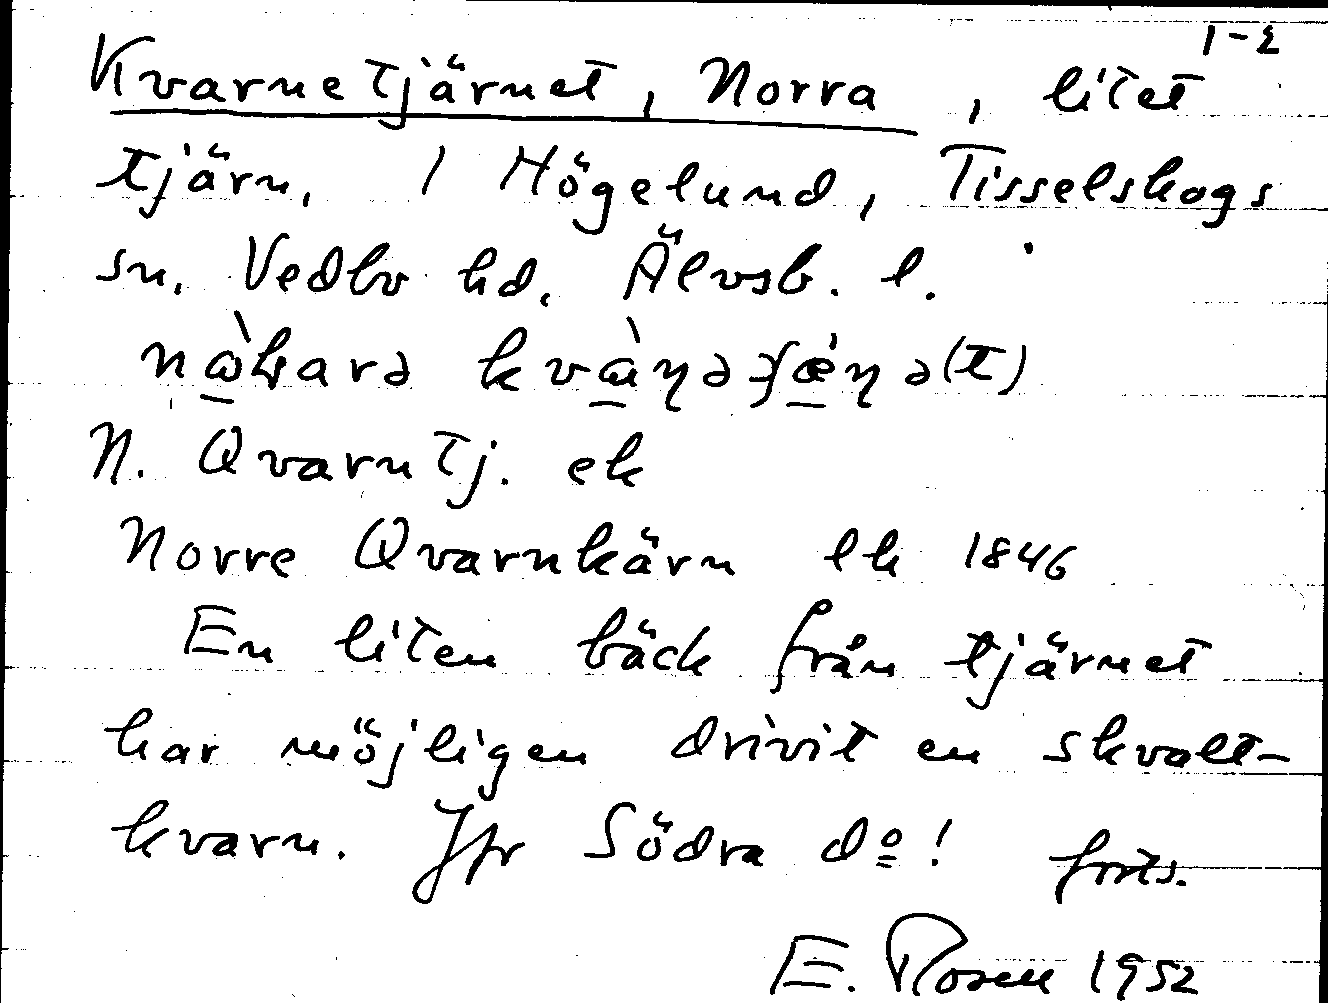 1-2
Kvarnetjärnet, Norra, litet
tjärn, i Högelund, Tisselskogs
sn, Vedbo hd, Älvsb. l.
N. Qvarntj. ek
Norre Qvarnkärn lk 1846
En liten bäck från tjärnet
har möjligen drivit en skvalt-
kvarn. Jfr Södra do! forts.
E. Rosell 1952